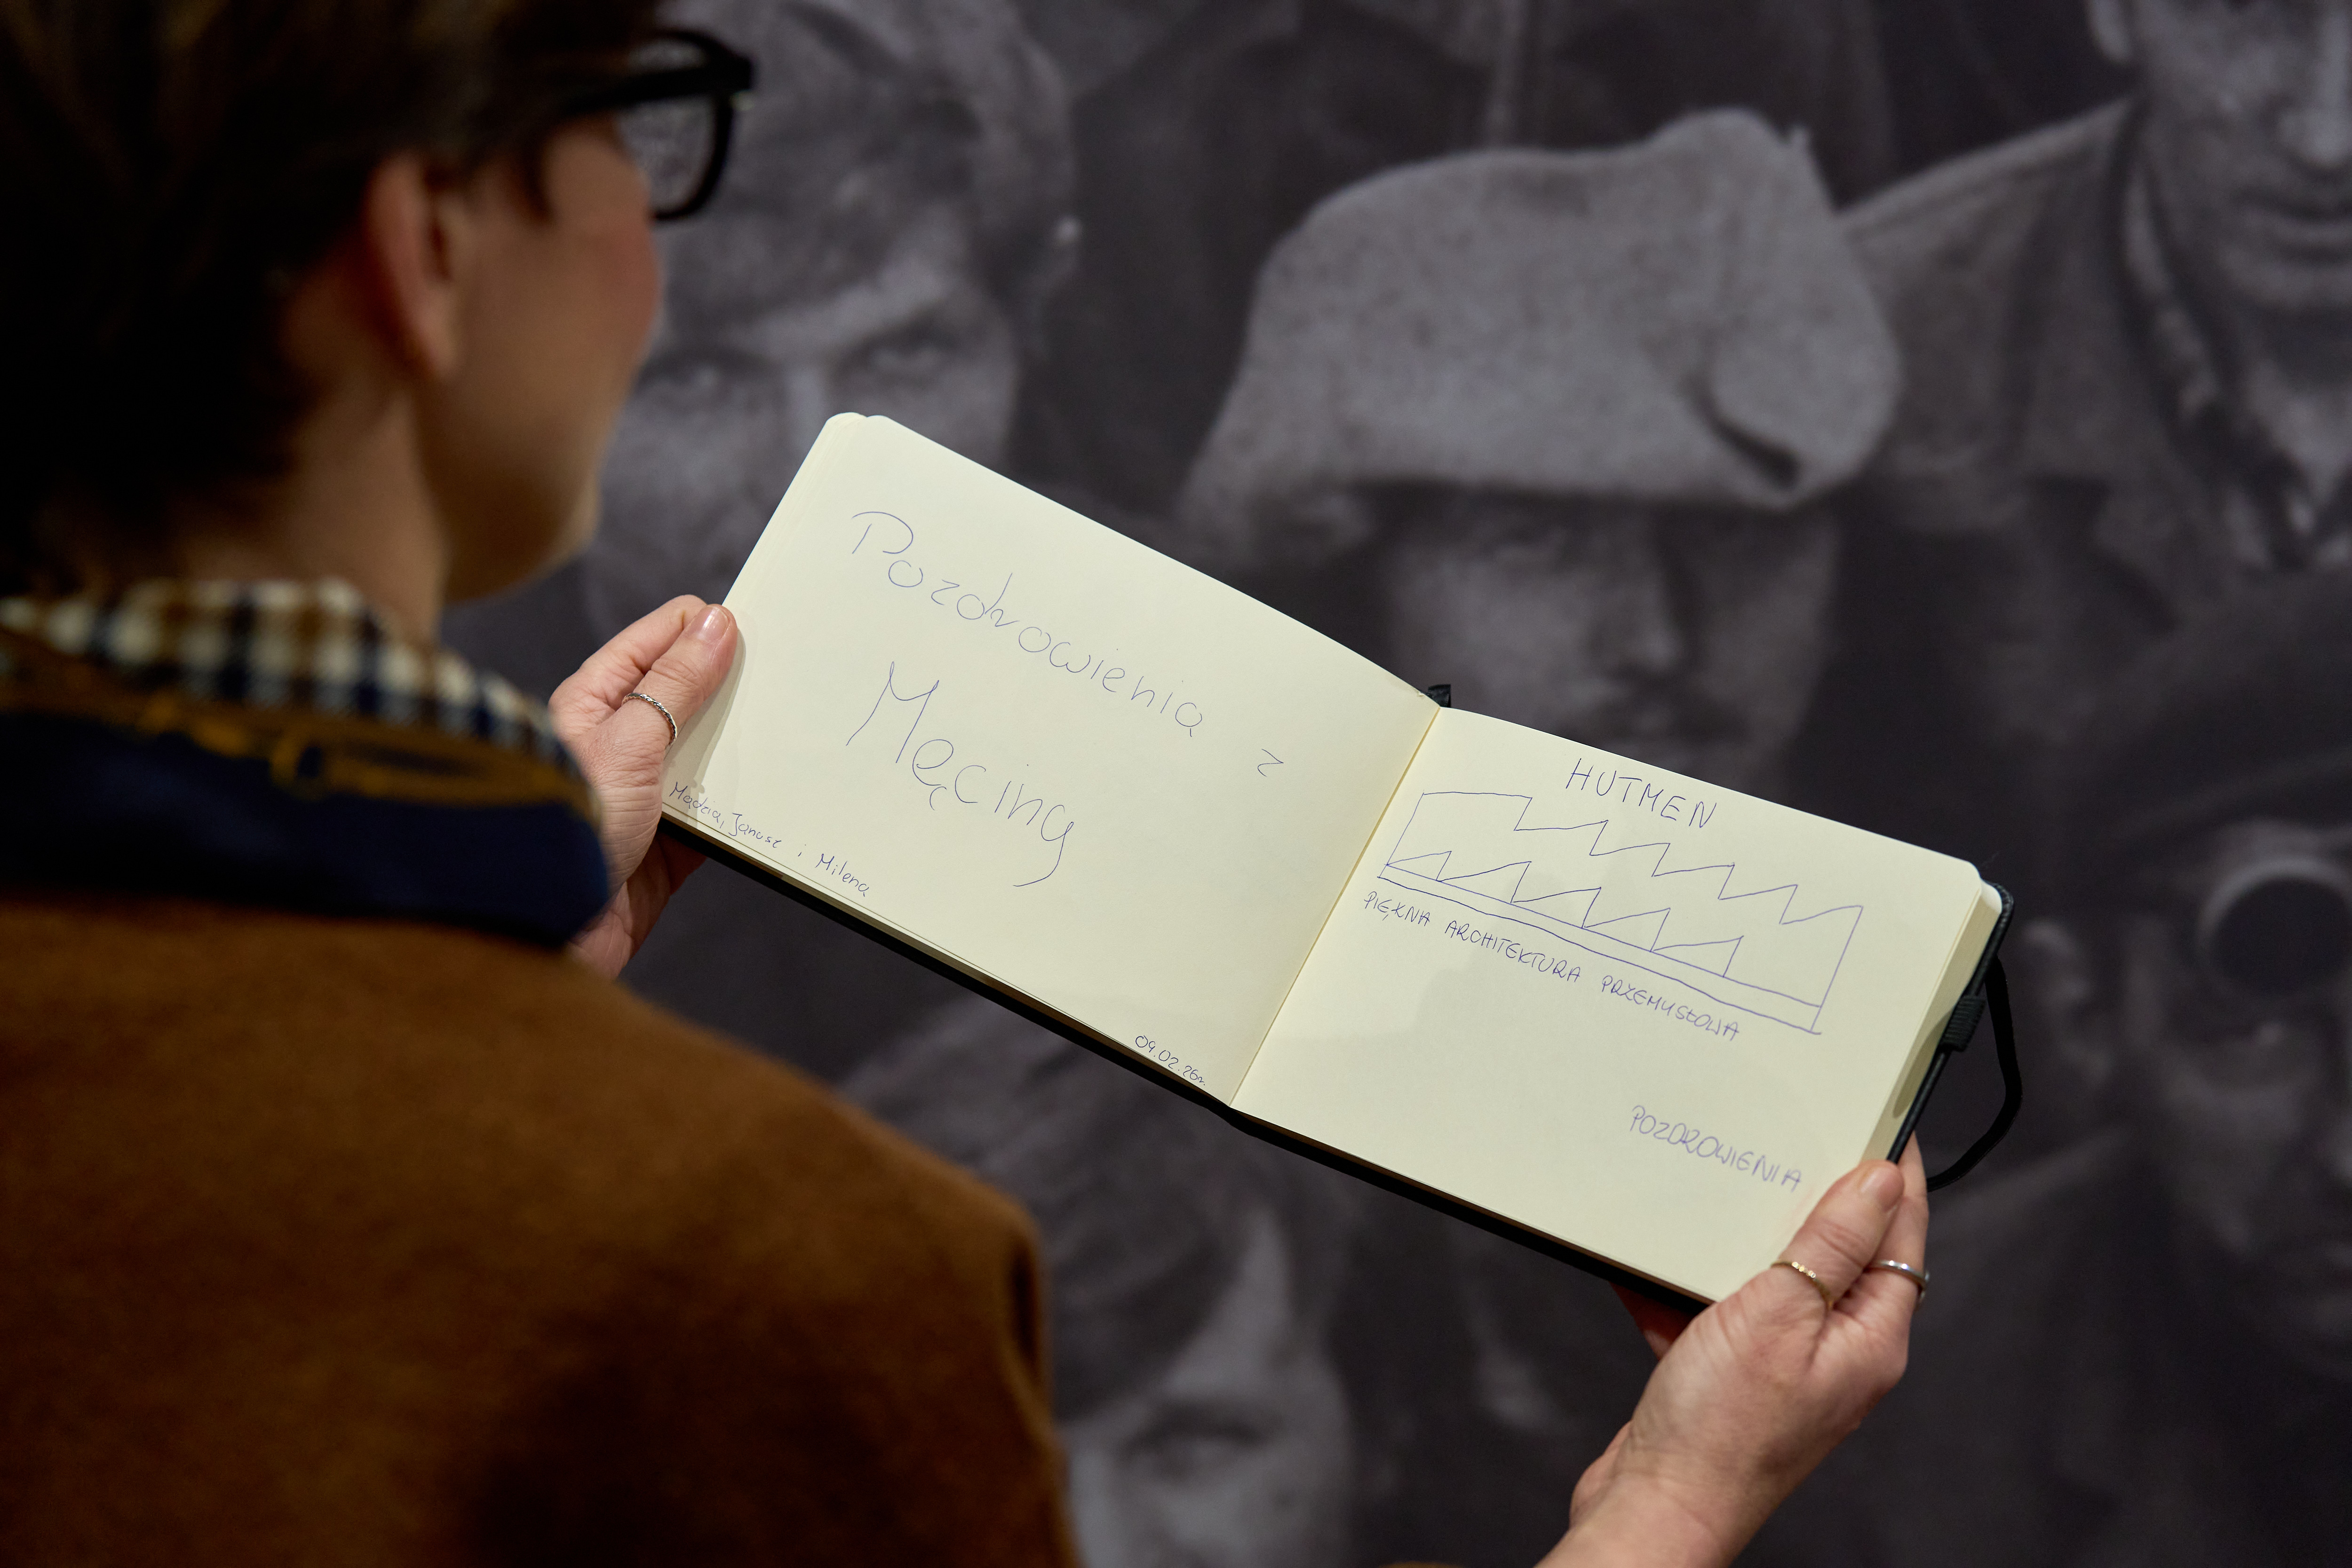 Pozdrowienia z
Męciną
Madzia, Janusz i Milena
09.02.26r.
HUTMEN
PIĘKNA ARCHITEKTURA PRZEMYSŁOWA
POZDROWIENIA